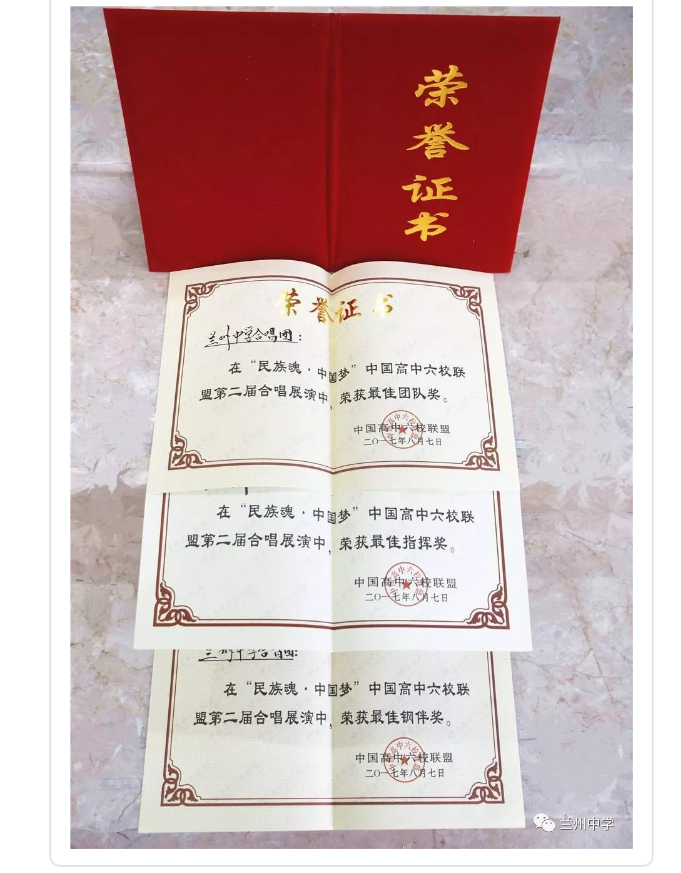 荣誉证书
荣誉证书
兰州中学合唱团：
在“民族魂·中国梦”中国高中六校联
盟第二届合唱展演中，荣获最佳团队奖。
中国高中六校联盟
二〇一七年八月七日
在“民族魂·中国梦”中国高中六校联
盟第二届合唱展演中，荣获最佳指挥奖。
中国高中六校联盟
二〇一七年八月七日
兰州中学合唱团：
在“民族魂·中国梦”中国高中六校联
盟第二届合唱展演中，荣获最佳钢伴奖。
中国高中六校联盟
二〇一七年八月七日
兰州中学